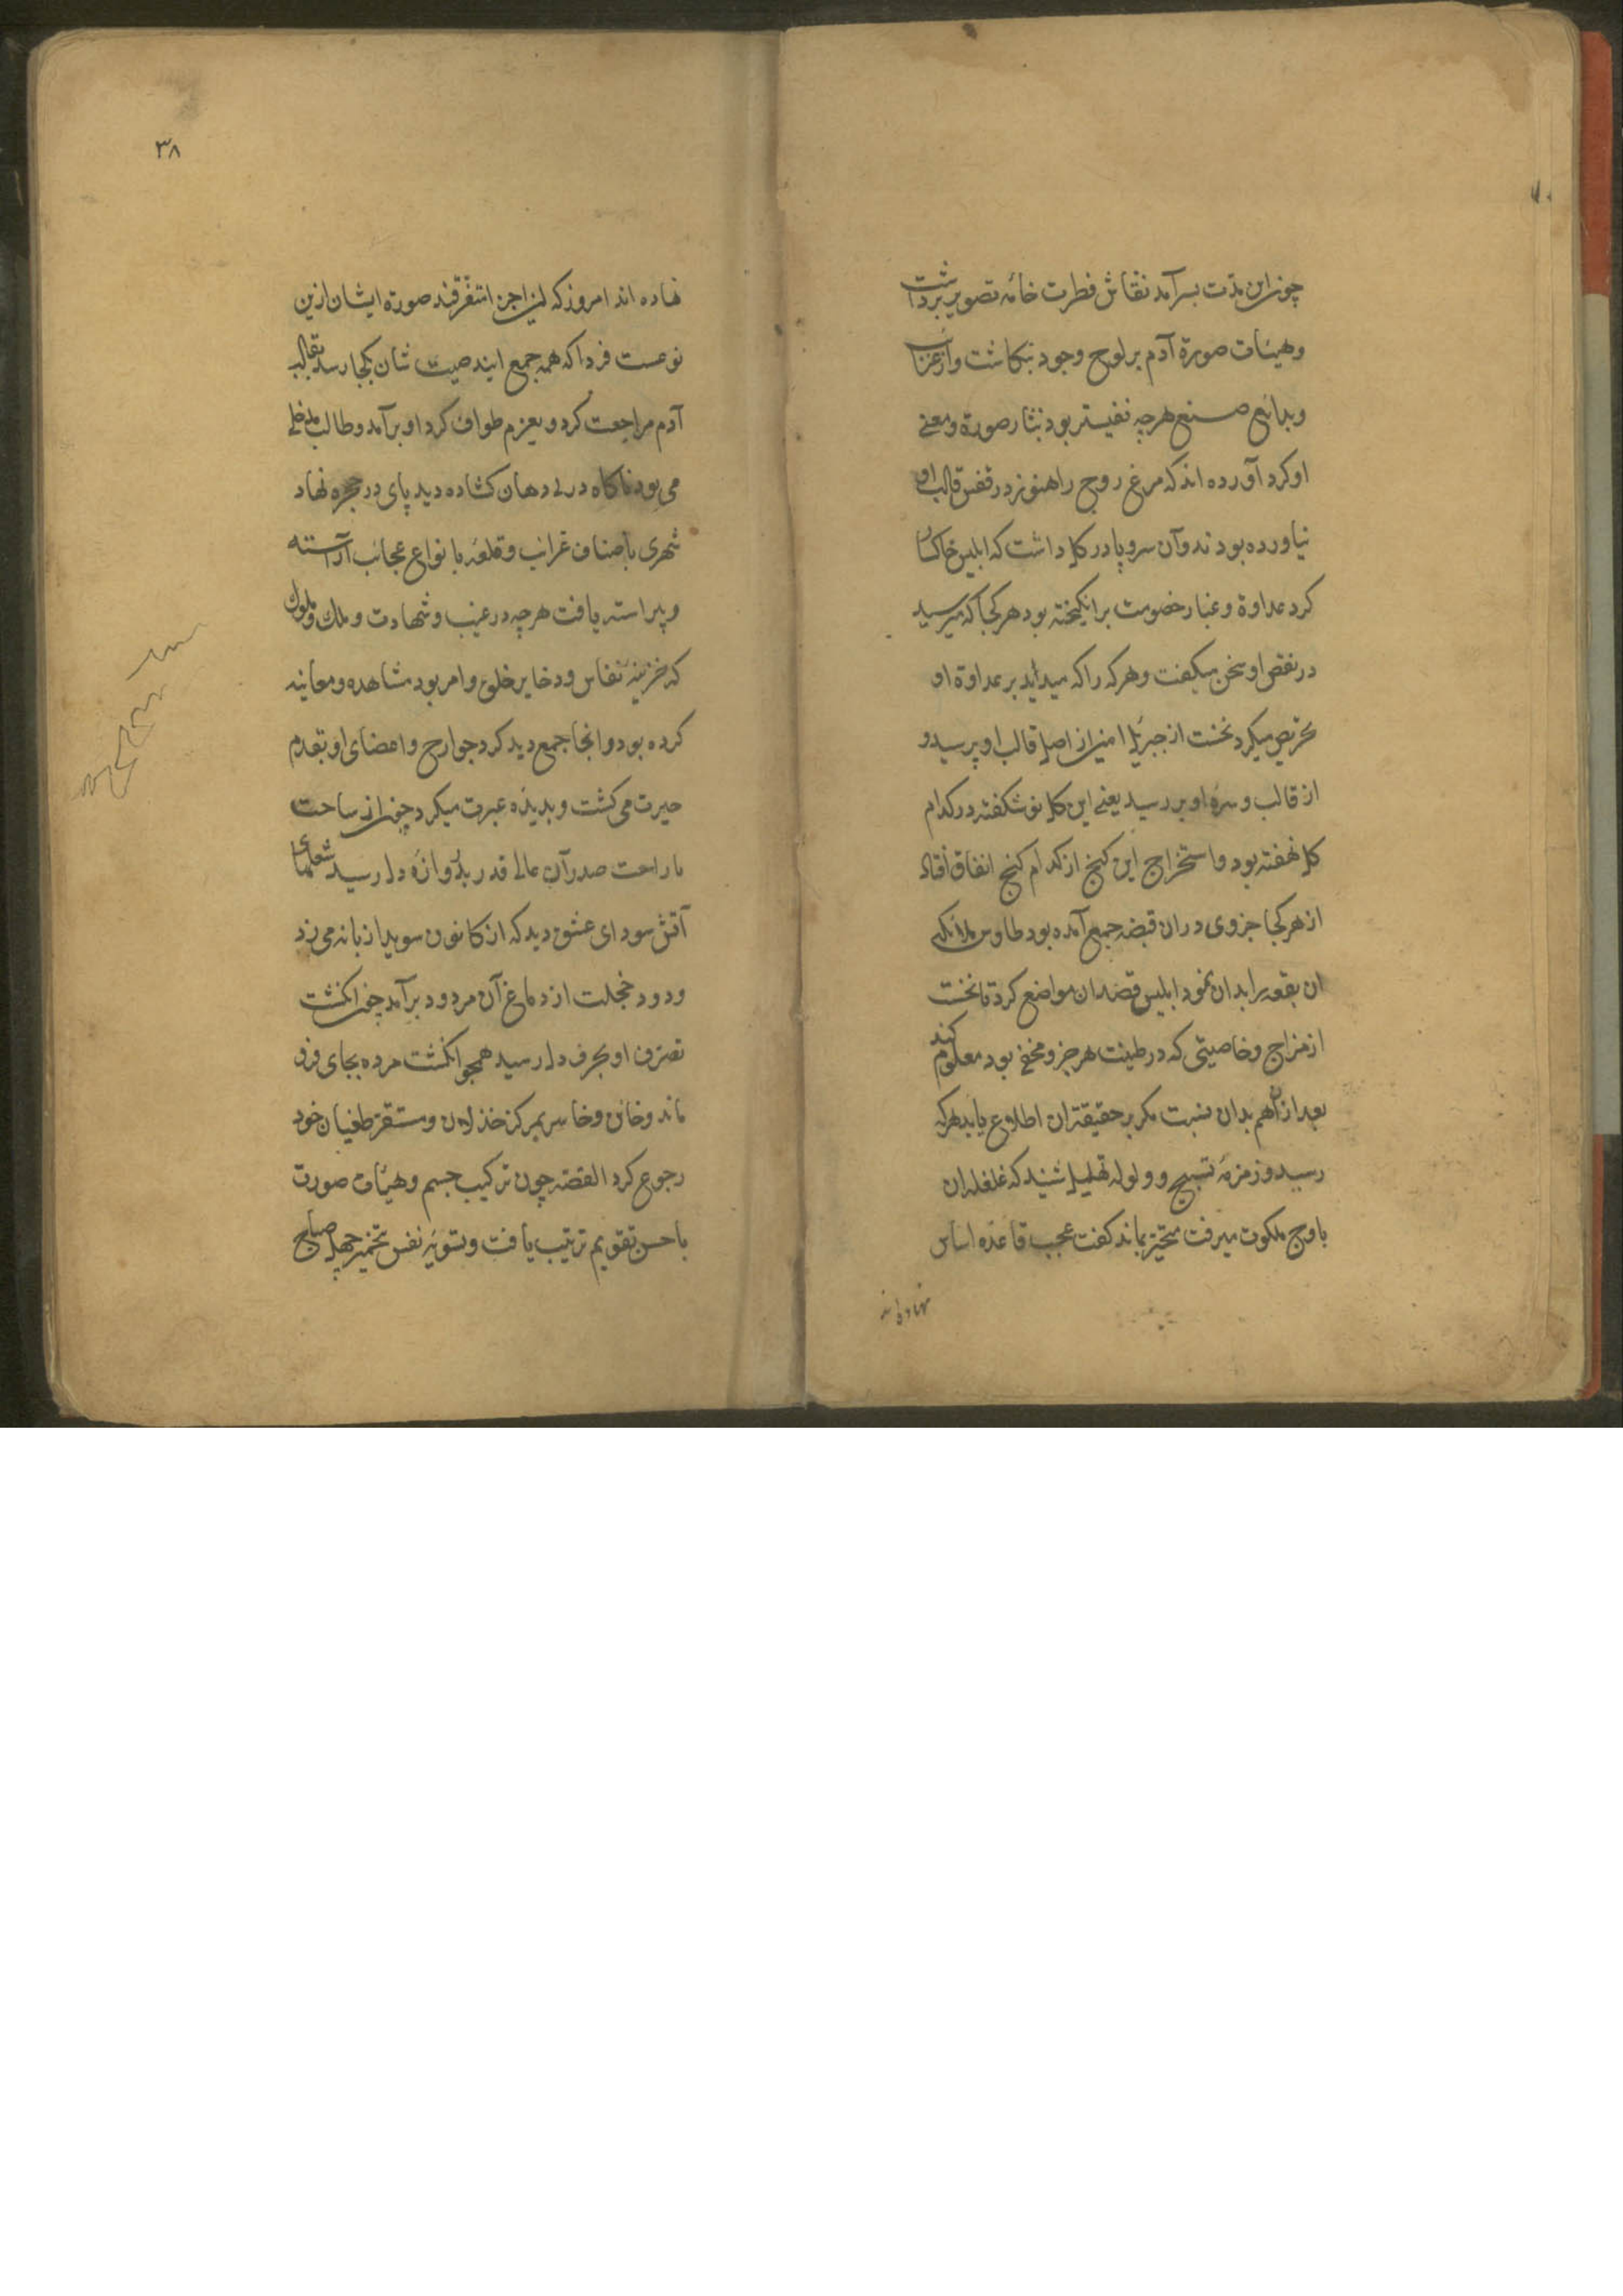 چون این مدت بسر آمد نقاش فطرت خامه تصویر برداشت
وهیئات صورة آدم بر لوح وجود بنکاشت واز غرایب
وبدائع صنع هرچه نفیستر بود نثار صورة ومعنی
او کرد آورده اند که مرغ روح را هنوز در قفس قالب او
نیاورده بودند وآن سرو پا در کل داشت که ابلیس خاکسار
کرد عداوة وغبار خصومت برانکیخته بود هر کجا که میرسید
در نقص او سخن میکفت وهرکه را که میدید بر عداوة او
تحریص میکرد نخست از جبرئیل امین از اصل قالب او پرسید و
از قالب و سره او بررسید یعنی این کل نو شکفته در کدام
کل نهفته بود واستخراج این کنج از کدام کنج اتفاق افتاد
از هر کجا جزوی دران قبضه جمع آمده بود طاوس ملائکه
ان بقعه را بدان نمود ابلیس قصد ان مواضع کرد تا نخست
از مزاج وخاصیتی که در طینت هر جزو مخفی بود معلوم کند
بعد از آن هم بدان نسبت مکر بر حقیقت ان اطلاع یابد هرکه
رسید وزمزمهٔ تسبیح و ولوله تهلیل شنید که غلغله ان
باوج ملکوت میرفت متحیر بماند کفت عجب قاعده اساس
نهاده اند
۳۸
نهاده اند امروز که این اجزا متفرقند صورة ایشان ازین
نوعست فردا که همه جمع ایند صیت شان بکجا رسد بقالب
آدم مراجعت کرد و بعزم طواف کرد او برآمد وطالب مدخلی
می بود ناکاه در دهان کشاده دید پای در حجره نهاد
شهری باصناف غرائب وقلعه با نواع عجائب آراسته
وپیراسته یافت هرچه در غیب وشهادت و ملک وملکوت
که خزینهٔ نفایس وذخایر خلق وامر بود مشاهده ومعاینه
کرده بود وانجا جمع دید کرد جوارح واعضای او بقدم
حیرت می کشت وبدیدهٔ عبرت میکرد چون از ساحت
با راحت صدر آن عالی قدر بدروازهٔ دل رسید شعلهای
آتش سودای عشق دید که از کانون سویدا زبانه می زد
ودود خجلت از دماغ آن مردود برآمد چون انکشت
تصرف او بحرف دل رسید همچو انکشت مرده بجای فرو
ماند وخائن وخاسر بمرکز خذلان ومستقر طغیان خود
رجوع کرد القصه چون ترکیب جسم وهیئات صورت
باحسن تقویم ترتیب یافت وتسویهٔ نفس تخمیر چهل صباح